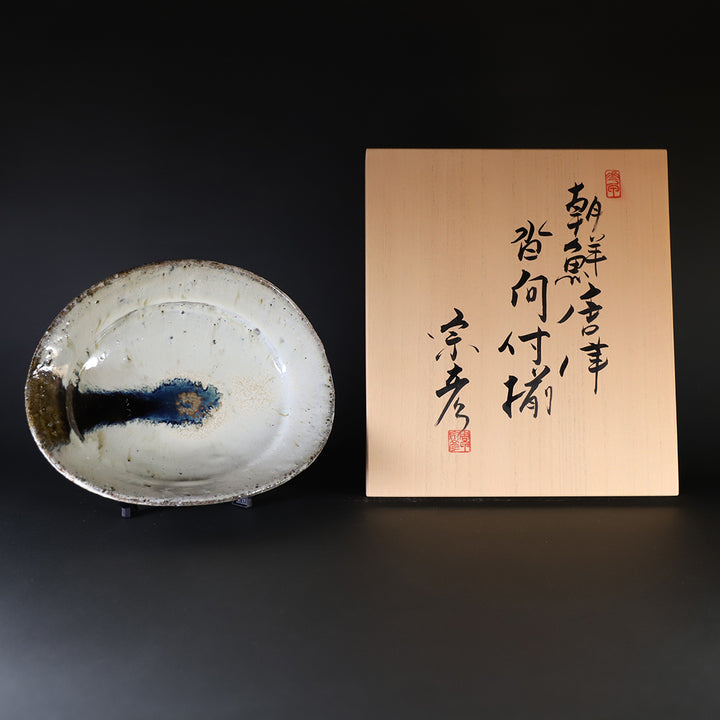 朝鮮唐津
沓向付揃
宗彦